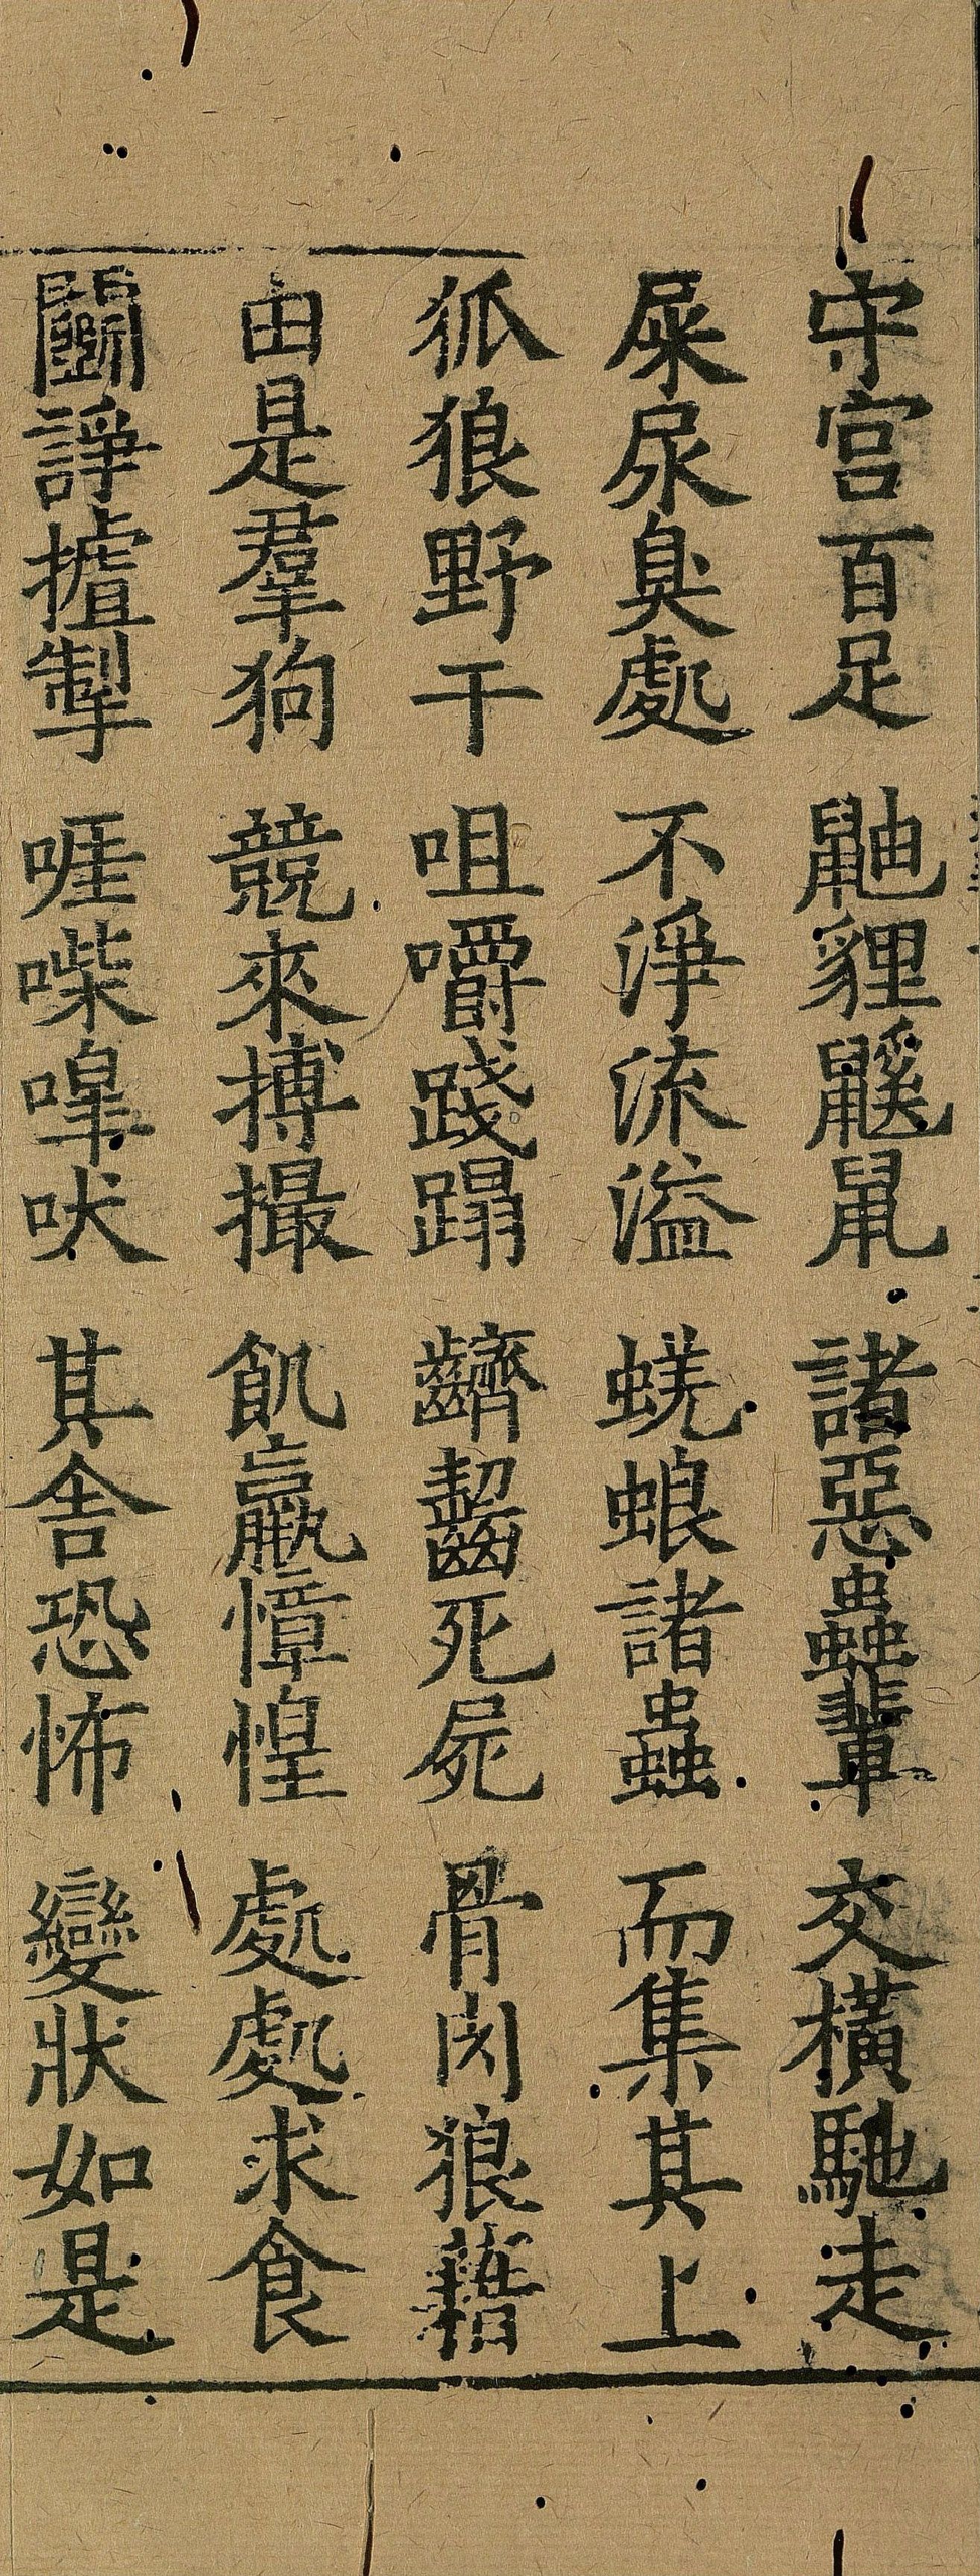 守宫百足 鼬貍鼷鼠 諸惡蟲輩 交橫馳走
屎尿臭處 不淨流溢 蜣蜋諸蟲 而集其上
狐狼野干 咀嚼踐蹋 齩齧死屍 骨肉狼藉
由是羣狗 競來搏撮 飢羸慞惶 處處求食
鬭諍摣掣 啀喍嘷吠 其舍恐怖 變狀如是